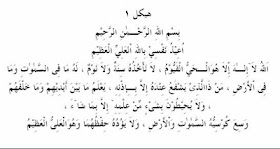 هيكل ١
بِسْمِ اللهِ الرَّحْمٰنِ الرَّحِيْمِ
أُعِيْذُ نَفْسِيْ بِاللهِ الْعَلِيِّ الْعَظِيْمِ
اَللهُ لَآ إِلٰهَ إِلَّا هُوَ الْحَيُّ الْقَيُّوْمُ ، لَا تَأْخُذُهُ سِنَةٌ وَلَا نَوْمٌ ، لَهُ مَا فِى السَّمٰوَاتِ وَمَا
فِى الْأَرْضِ ، مَنْ ذَا الَّذِيْ يَشْفَعُ عِنْدَهُ إِلَّا بِإِذْنِهِ ، يَعْلَمُ مَا بَيْنَ أَيْدِيْهِمْ وَمَا خَلْفَهُمْ
، وَلَا يُحِيْطُوْنَ بِشَيْءٍ مِّنْ عِلْمِهِ إِلَّا بِمَا شَآءَ ،
وَسِعَ كُرْسِيُّهُ السَّمٰوَاتِ وَالْأَرْضَ ، وَلَا يَؤُدُهُ حِفْظُهُمَا وَهُوَ الْعَلِيُّ الْعَظِيْمُ